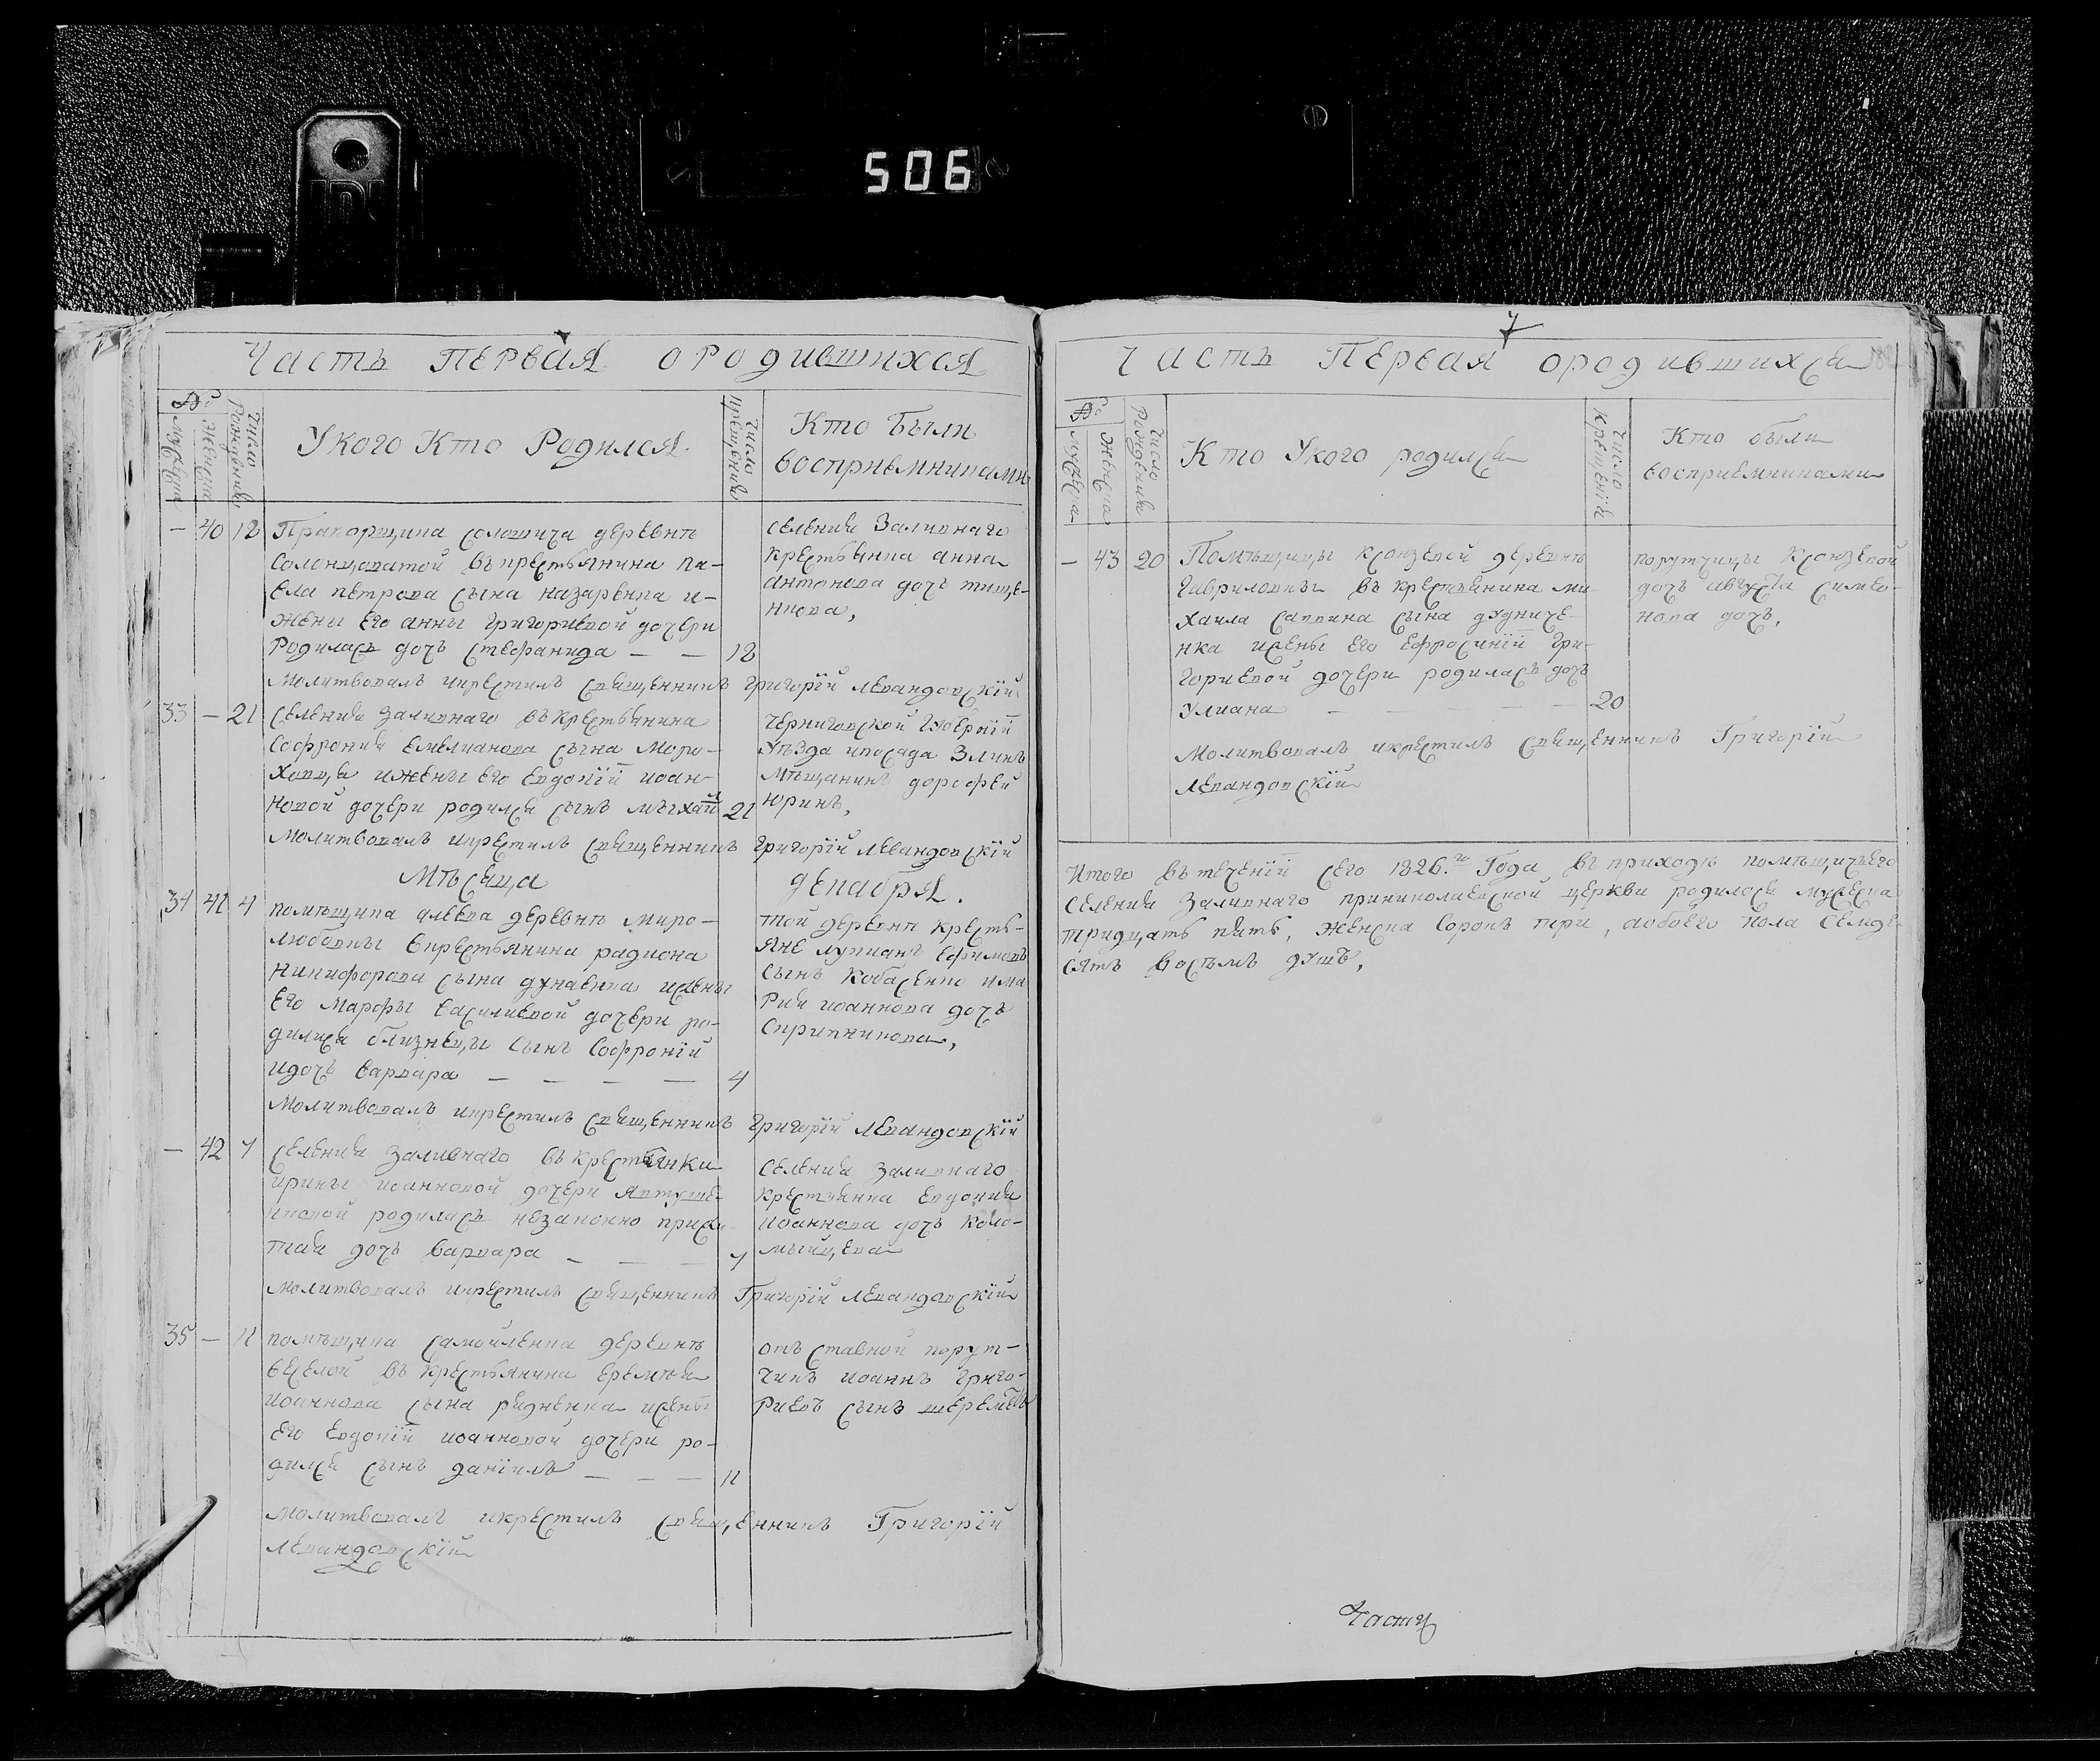 506
Часть первая о родившихся
№
Мужеска
Женска
Число Рождения
У кого Кто Родился.
Число Крещения
Кто Были
восприемниками
— 40 18 Прапорщика деревнѣ
Солонцоватой въ крестьянина Па-
вла Петрова сына Назаренка и-
жены Его анны Григориевой дочери
Родилась дочь Стефанида — — 18
Селения Заливнаго
крестьянка анна
антонова дочь тище-
нкова,
Молитвовалъ икрестилъ священникъ Григорій Левандовскій
33 — 21 Селения Заливнаго въ крестьянина
Софрония Емелианова сына Моро-
ховца ижены его евдокіи иоан-
новой дочери родился сынъ 21
Черниговской Губерніи
Уѣзда ипосада Злинъ
Мѣщанинъ дорофей
Юринъ,
Молитвовалъ икрестилъ священникъ Григорій Левандовскій
Мѣсяца декабря.
34 41 4 помѣщика деревнѣ Миро-
любовки вкрестьянина радиона
Никифорова сына дунаенка ижены
Его Марфы василиевой дочери ро-
дилися близнецы сынъ Софроній
идочь варвара — — — — 4
той деревнѣ крестья-
яне лукианъ Ефимовъ
сынъ Кобасенко има
рия иоаннова дочь
Скрипникова,
Молитвовалъ икрестилъ священникъ Григорій Левандовскій
— 42 7 Селения Заливнаго въ крестьянки
ирины иоанновой дочери Явтуше-
нковой родилась незаконно прижи-
тая дочь варвара — — — 7
Селения Заливнаго
крестьянка Евдокия
иоаннова дочь Коло-
мыйцева
Молитвовалъ икрестилъ священникъ Григорій Левандовскій
35 — 11 помѣщика Самойленка деревнѣ
веселой въ крестьянина еремѣя
иоаннова сына редненка ижены
Его Евдокіи иоанновой дочери ро-
дился сынъ даніилъ — — — 11
отъ ставной порут-
чикъ иоаннъ григо-
риевъ сынъ
Молитвовалъ икрестилъ священникъ Григорій
Левандовскій
7
Часть Первая о родившихся
№
Мужеска
Женска
Число Рождения
Кто У кого родился
Число Крещенія
Кто были
восприемниками
— 43 20 Помѣщицы Кронзевой деревнѣ
Гавриловки въ крестьянина ми-
хаила Саввина сына дудниче-
нка ижены его ефросиніи Гри-
гориевой дочери родилась дочь
Улиана — — — — — 20
порутчицы Кронзевой
дочь августа симео-
нова дочь,
Молитвовалъ икрестилъ священникъ Григорій
Левандовскій
Итого въ теченіи сего 1826.го Года въ приходѣ помѣщичьего
Селения Заливнаго приниколаевской церкви родилося мужеска
тридцать пять, женска сорокъ три, аобоего пола семде-
сятъ восемь душъ,
Часть